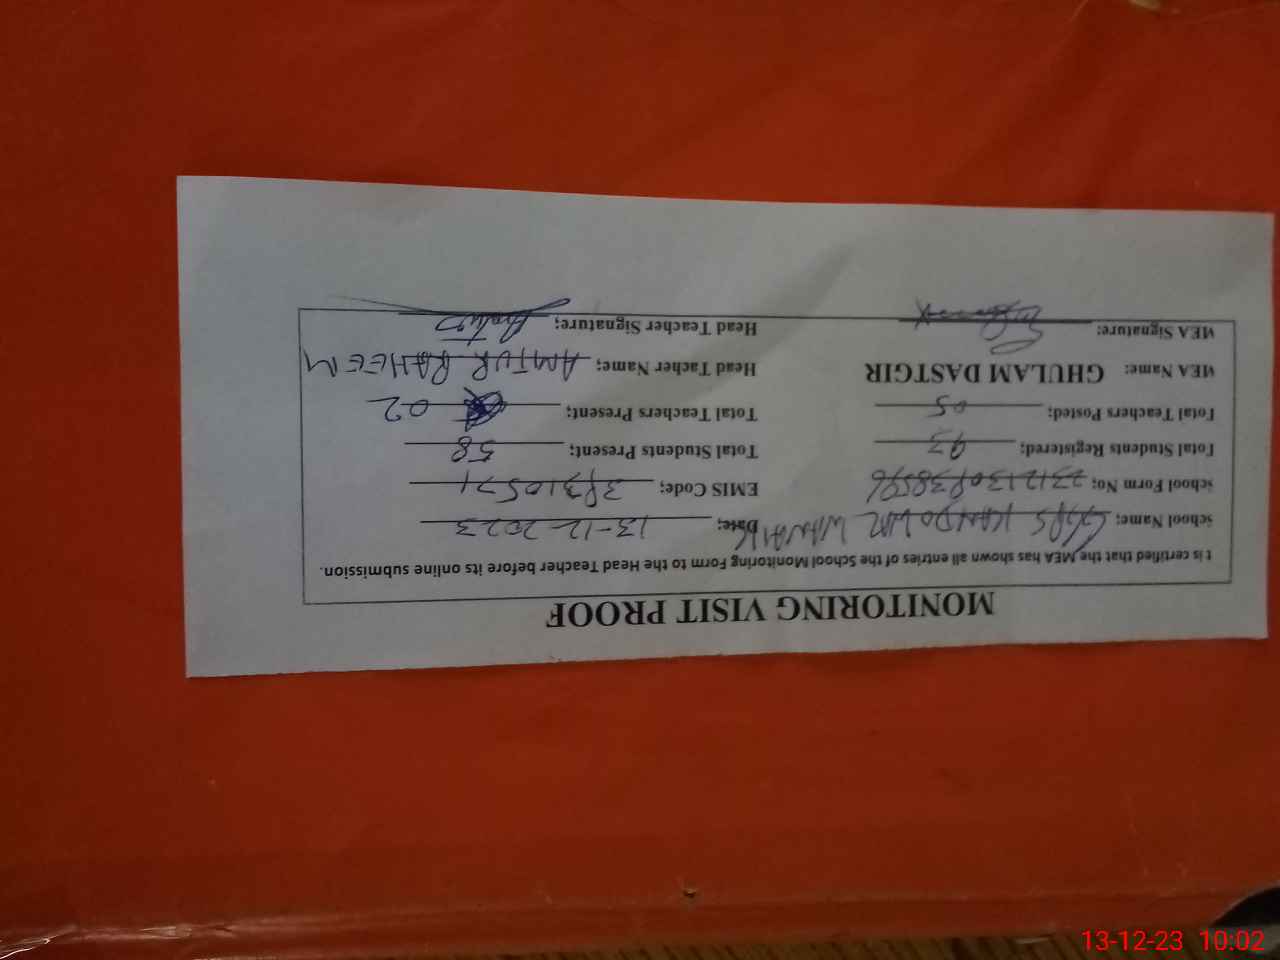 MONITORING VISIT PROOF
t is certified that the MEA has shown all entries of the School Monitoring Form to the Head Teacher before its online submission.
school Name; GGPS KANDOWAL WANAIK Date; 13-12-2023
school Form No; EMIS Code; 38310571
Total Students Registered; 93 Total Students Present; 58
Total Teachers Posted; 05 Total Teachers Present; 02
MEA Name: GHULAM DASTGIR Head Tacher Name; AMTUR RAHEEM
MEA Signature: Head Teacher Signature;
13-12-23 10:02